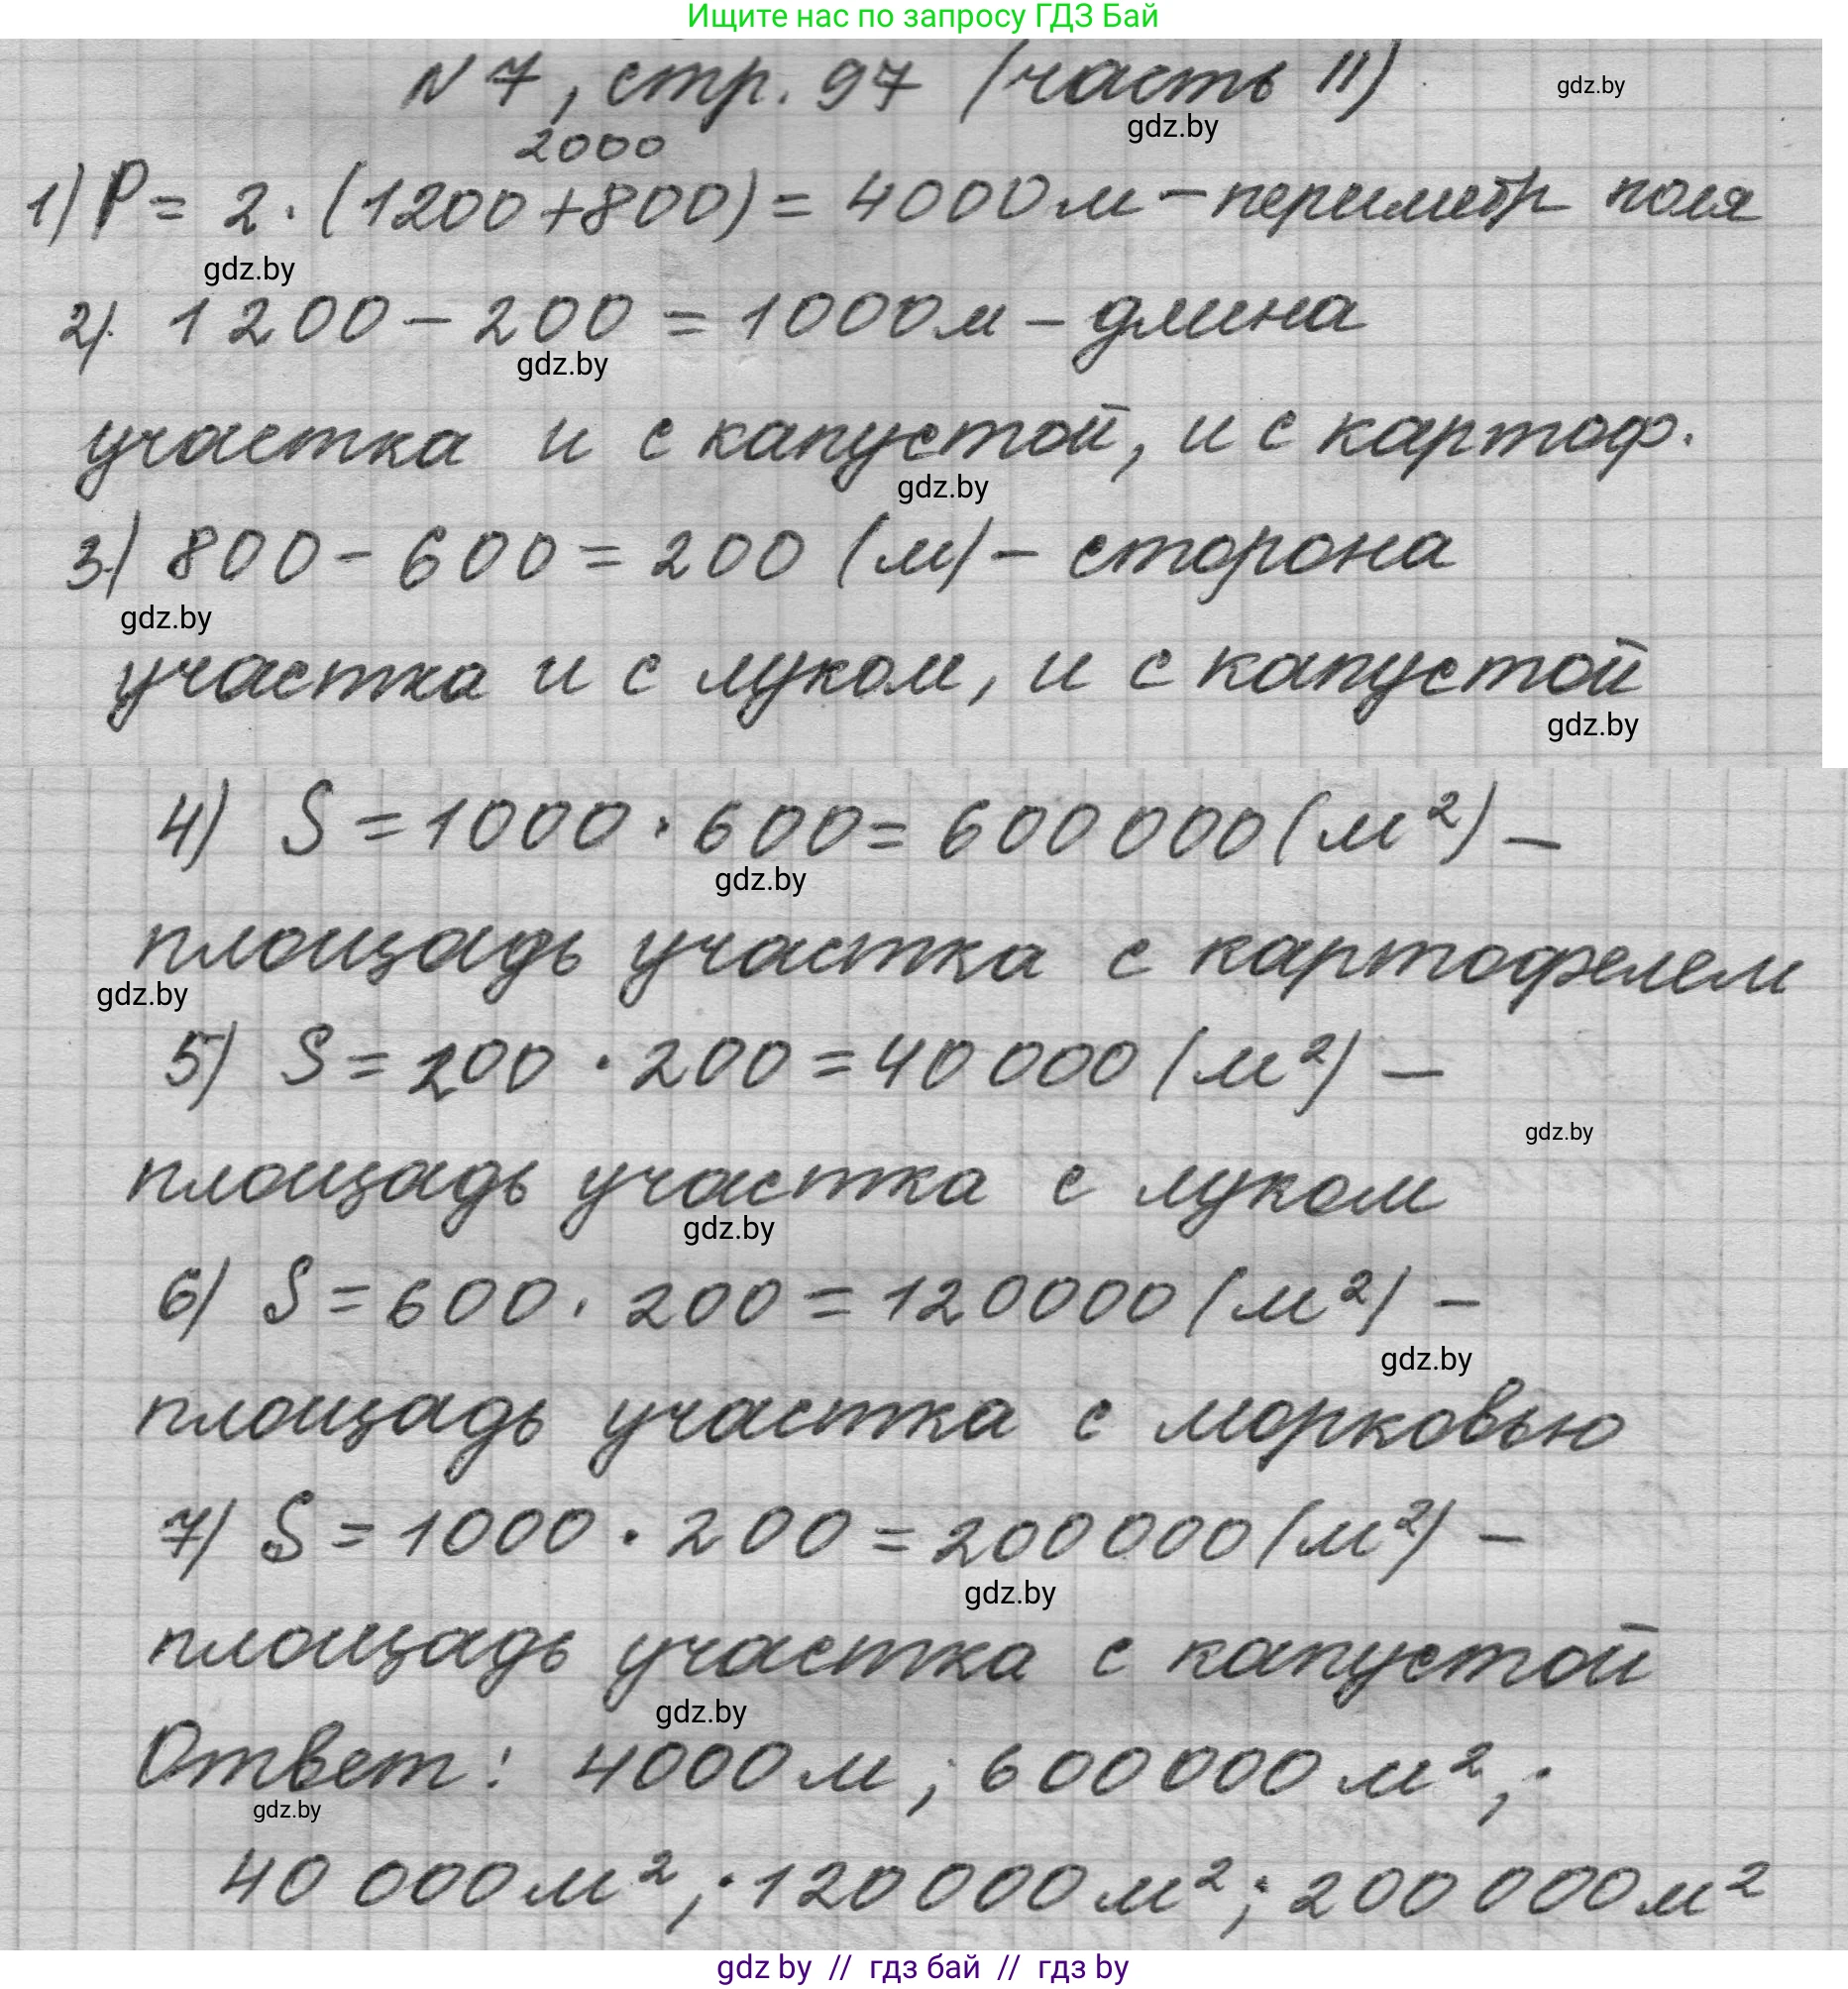 Ищите нас по запросу ГДЗ Бай
N 7, стр. 97 (часть II)
gdz.by
gdz.by
2000
1) P = 2 · (1200 + 800) = 4000 м - периметр поля
gdz.by
2) 1200 - 200 = 1000 м - длина
gdz.by
участка и с капустой, и с картоф.
gdz.by
3) 800 - 600 = 200 (м) - сторона
gdz.by
участка и с луком, и с капустой
gdz.by
4) S = 1000 · 600 = 600 000 (м²) -
gdz.by
площадь участка с картофелем
gdz.by
5) S = 200 · 200 = 40 000 (м²) -
gdz.by
площадь участка с луком
gdz.by
6) S = 600 · 200 = 120000 (м²) -
gdz.by
площадь участка с морковью
7) S = 1000 · 200 = 200000 (м²) -
gdz.by
площадь участка с капустой
gdz.by
Ответ: 4000 м; 600000 м²;
gdz.by
40 000 м²; 120000 м²; 200 000 м²
gdz by // гдз бай // гдз by